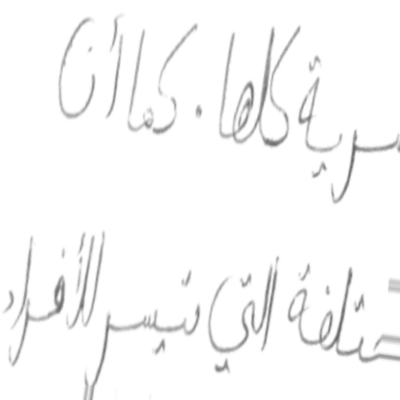 سرية كلها. كما أن
ختلفة التي تيسر للأفراد